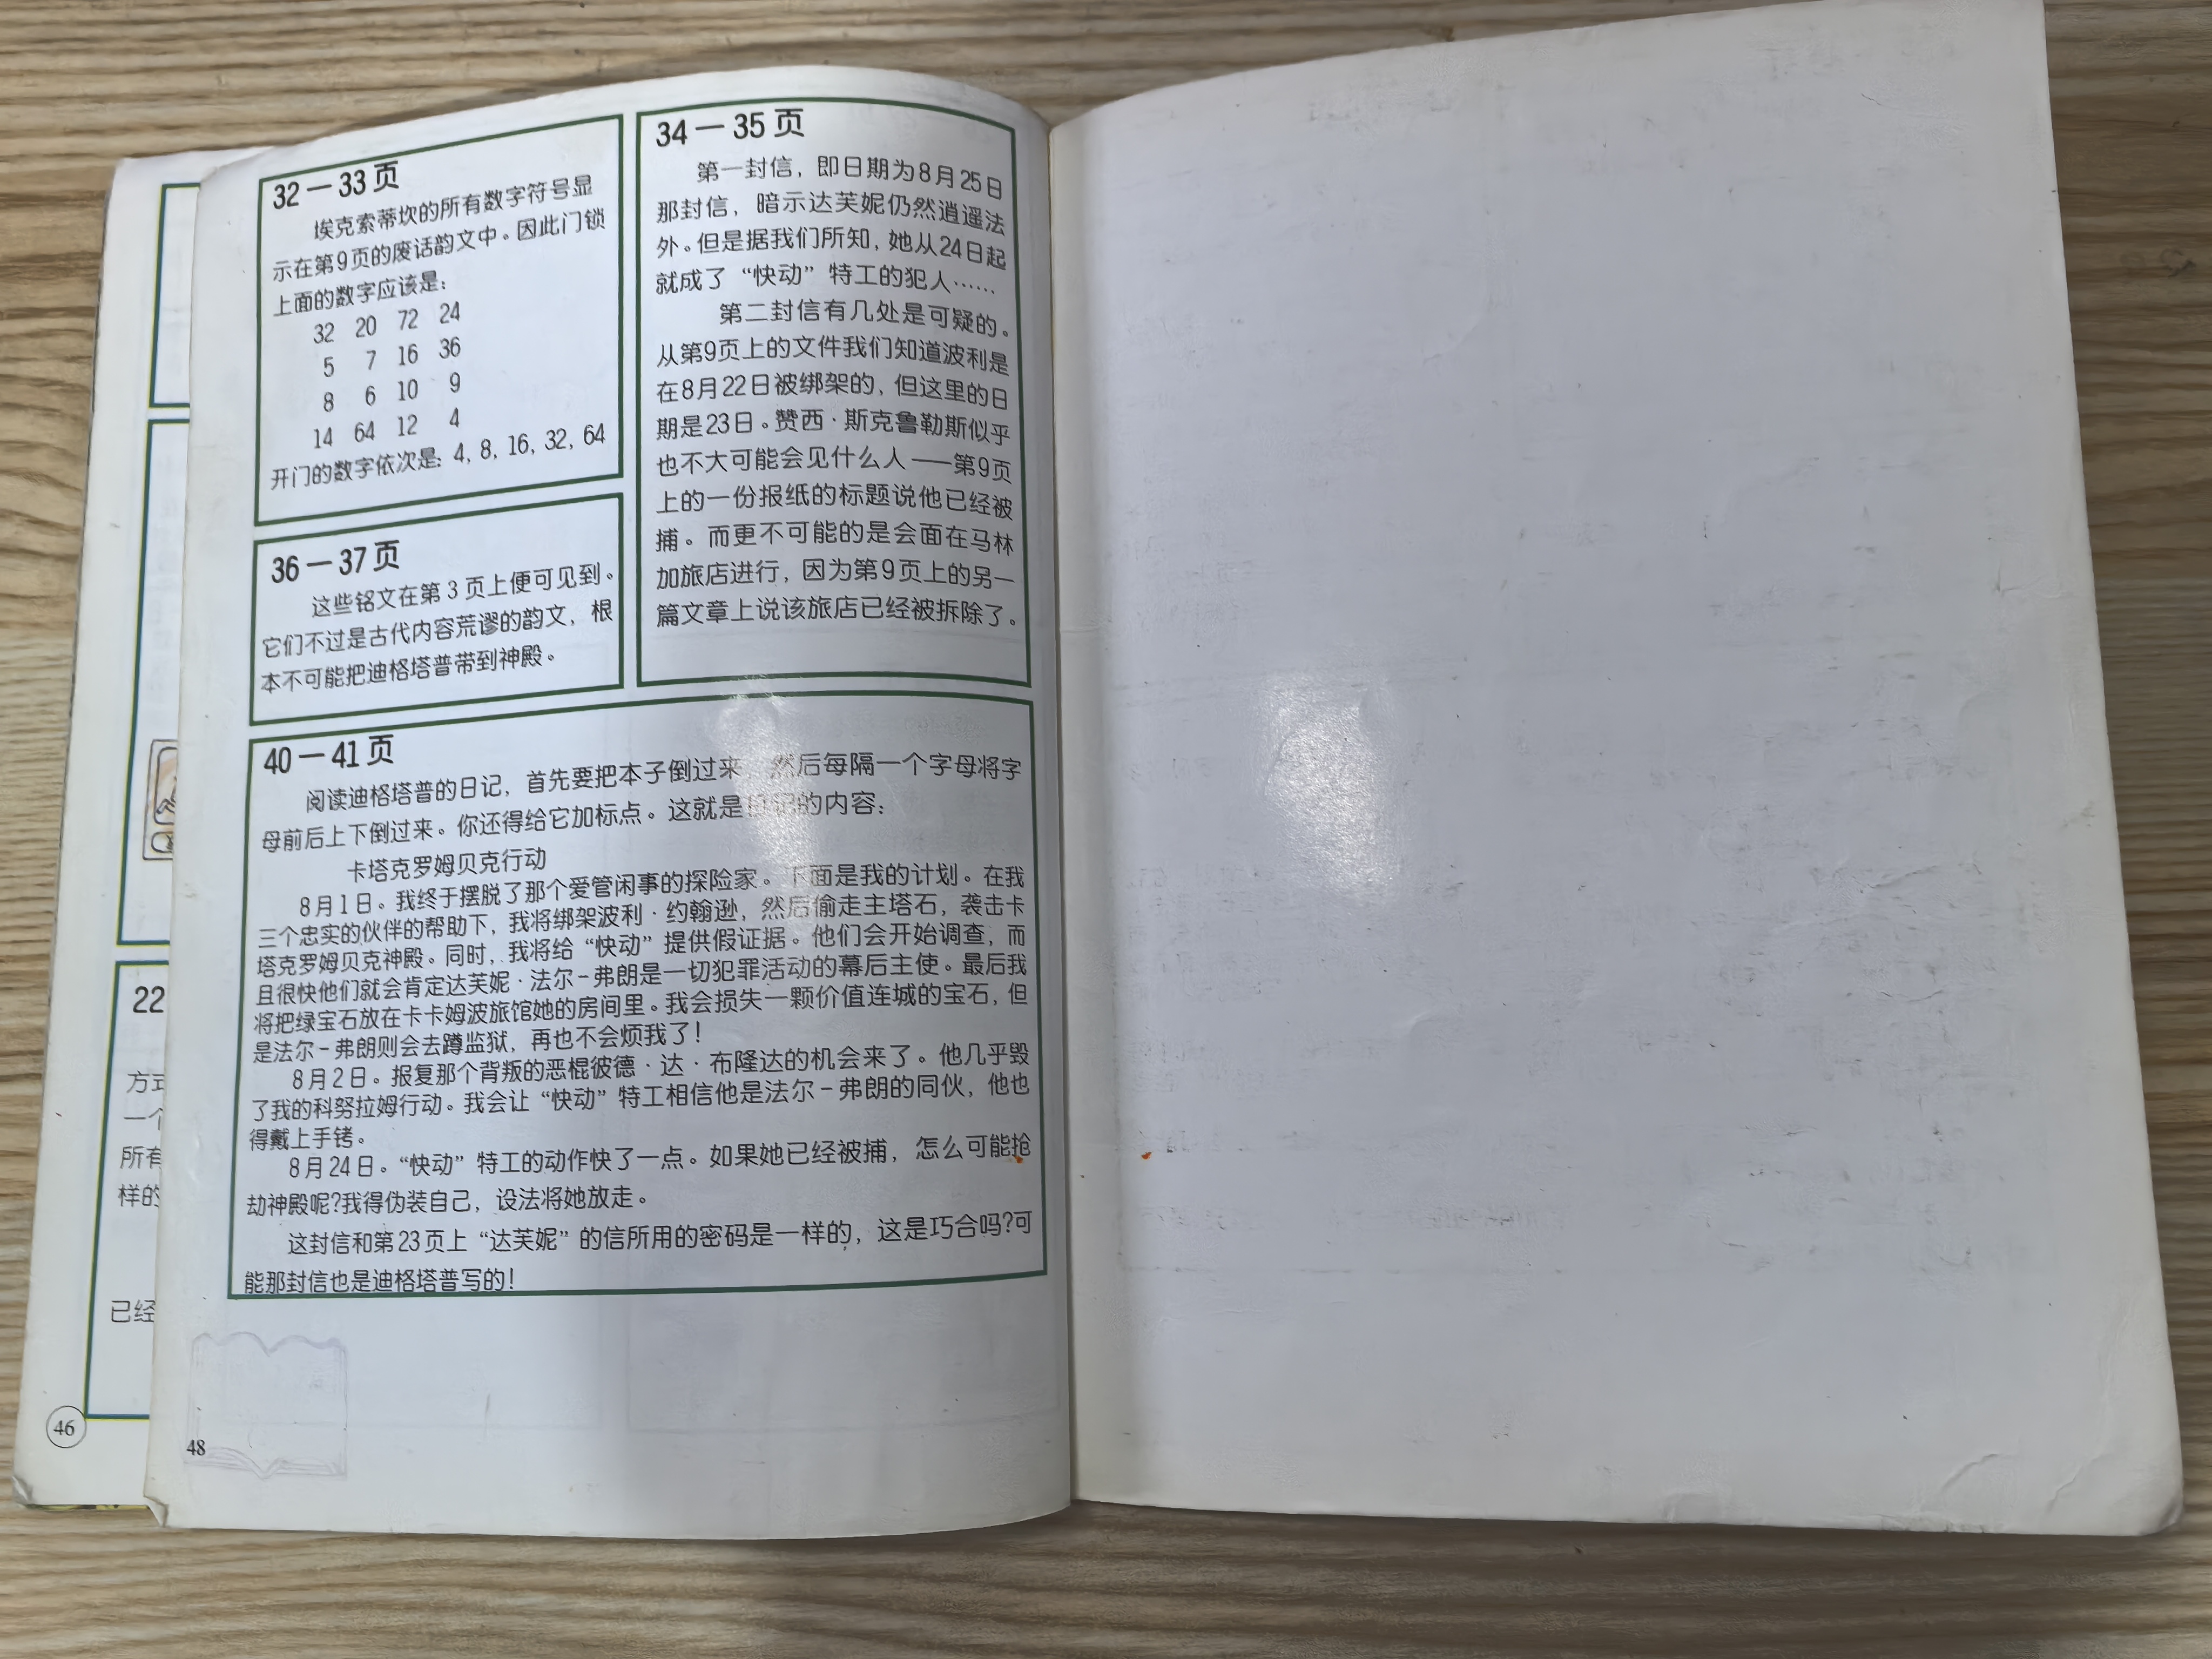 32－33页
埃克索蒂坎的所有数字符号显
示在第9页的废话韵文中。因此门锁
上面的数字应该是：
32 20 72 24
5 7 16 36
8 6 10 9
14 64 12 4
开门的数字依次是：4, 8, 16, 32, 64
36－37页
这些铭文在第3页上便可见到。
它们不过是古代内容荒谬的韵文，根
本不可能把迪格塔普带到神殿。
34－35页
第一封信，即日期为8月25日
那封信，暗示达芙妮仍然逍遥法
外。但是据我们所知，她从24日起
就成了“快动”特工的犯人……
第二封信有几处是可疑的。
从第9页上的文件我们知道波利是
在8月22日被绑架的，但这里的日
期是23日。赞西·斯克鲁勒斯似乎
也不大可能会见什么人——第9页
上的一份报纸的标题说他已经被
捕。而更不可能的是会面在马林
加旅店进行，因为第9页上的另一
篇文章上说该旅店已经被拆除了。
40－41页
阅读迪格塔普的日记，首先要把本子倒过来，然后每隔一个字母将字
母前后上下倒过来。你还得给它加标点。这就是日记的内容：
卡塔克罗姆贝克行动
8月1日。我终于摆脱了那个爱管闲事的探险家。下面是我的计划。在我
三个忠实的伙伴的帮助下，我将绑架波利·约翰逊，然后偷走主塔石，袭击卡
塔克罗姆贝克神殿。同时，我将给“快动”提供假证据。他们会开始调查，而
且很快他们就会肯定达芙妮·法尔－弗朗是一切犯罪活动的幕后主使。最后我
将把绿宝石放在卡卡姆波旅馆她的房间里。我会损失一颗价值连城的宝石，但
是法尔－弗朗则会去蹲监狱，再也不会烦我了！
8月2日。报复那个背叛的恶棍彼德·达·布隆达的机会来了。他几乎毁
了我的科努拉姆行动。我会让“快动”特工相信他是法尔－弗朗的同伙，他也
得戴上手铐。
8月24日。“快动”特工的动作快了一点。如果她已经被捕，怎么可能抢
劫神殿呢?我得伪装自己，设法将她放走。
这封信和第23页上“达芙妮”的信所用的密码是一样的，这是巧合吗?可
能那封信也是迪格塔普写的！
48
22
方式
一个
所有
样的
已经
46